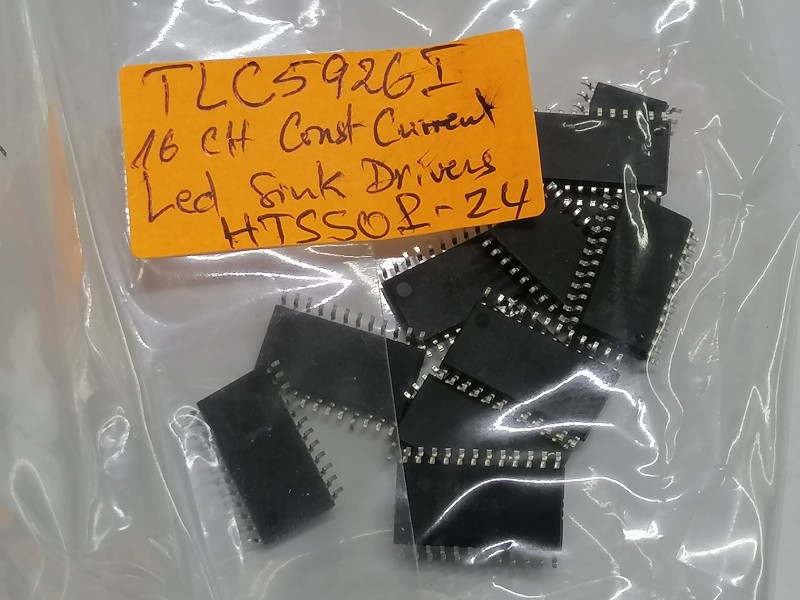 TLC5926I
16 CH Const Current
Led Sink Drivers
HTSSOP-24